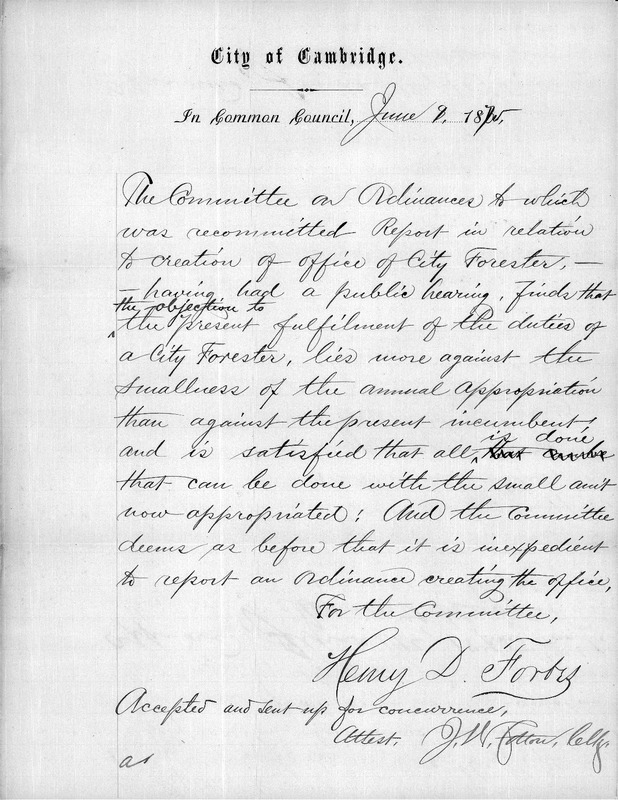 City of Cambridge.
In Common Council, June 9, 1875,
The Committee on Ordinances to which
was recommitted Report in relation
to creation of office of City Forester, —
— having had a public hearing, finds that
the objection to
the present fulfilment of the duties of
a City Forester, lies more against the
smallness of the annual appropriation
than against the present incumbent,
is done
and is satisfied that all
that can be done with the small amt
now appropriated: And the Committee
deems as before that it is inexpedient
to report an Ordinance creating the office,
For the Committee,
Henry D. Forbes
Accepted and sent up for concurrence,
Attest, J. W. Cotton, Clk,